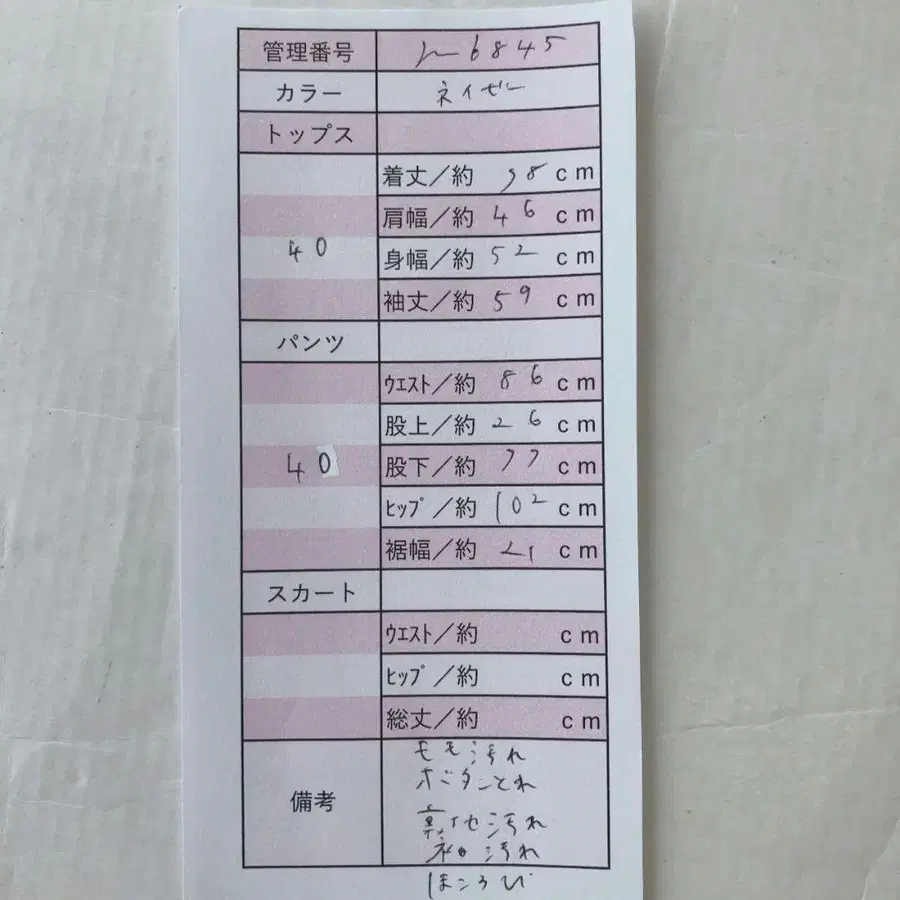 管理番号 6845
カラー ネイビー
トップス
40
着丈／約 98 cm
肩幅／約 46 cm
身幅／約 52 cm
袖丈／約 59 cm
パンツ
40
ウエスト／約 86 cm
股上／約 26 cm
股下／約 77 cm
ヒップ／約 102 cm
裾幅／約 21 cm
スカート
ウエスト／約 cm
ヒップ／約 cm
総丈／約 cm
備考
モモ汚れ
ボタンとれ
裏地汚れ
袖汚れ
ほころび